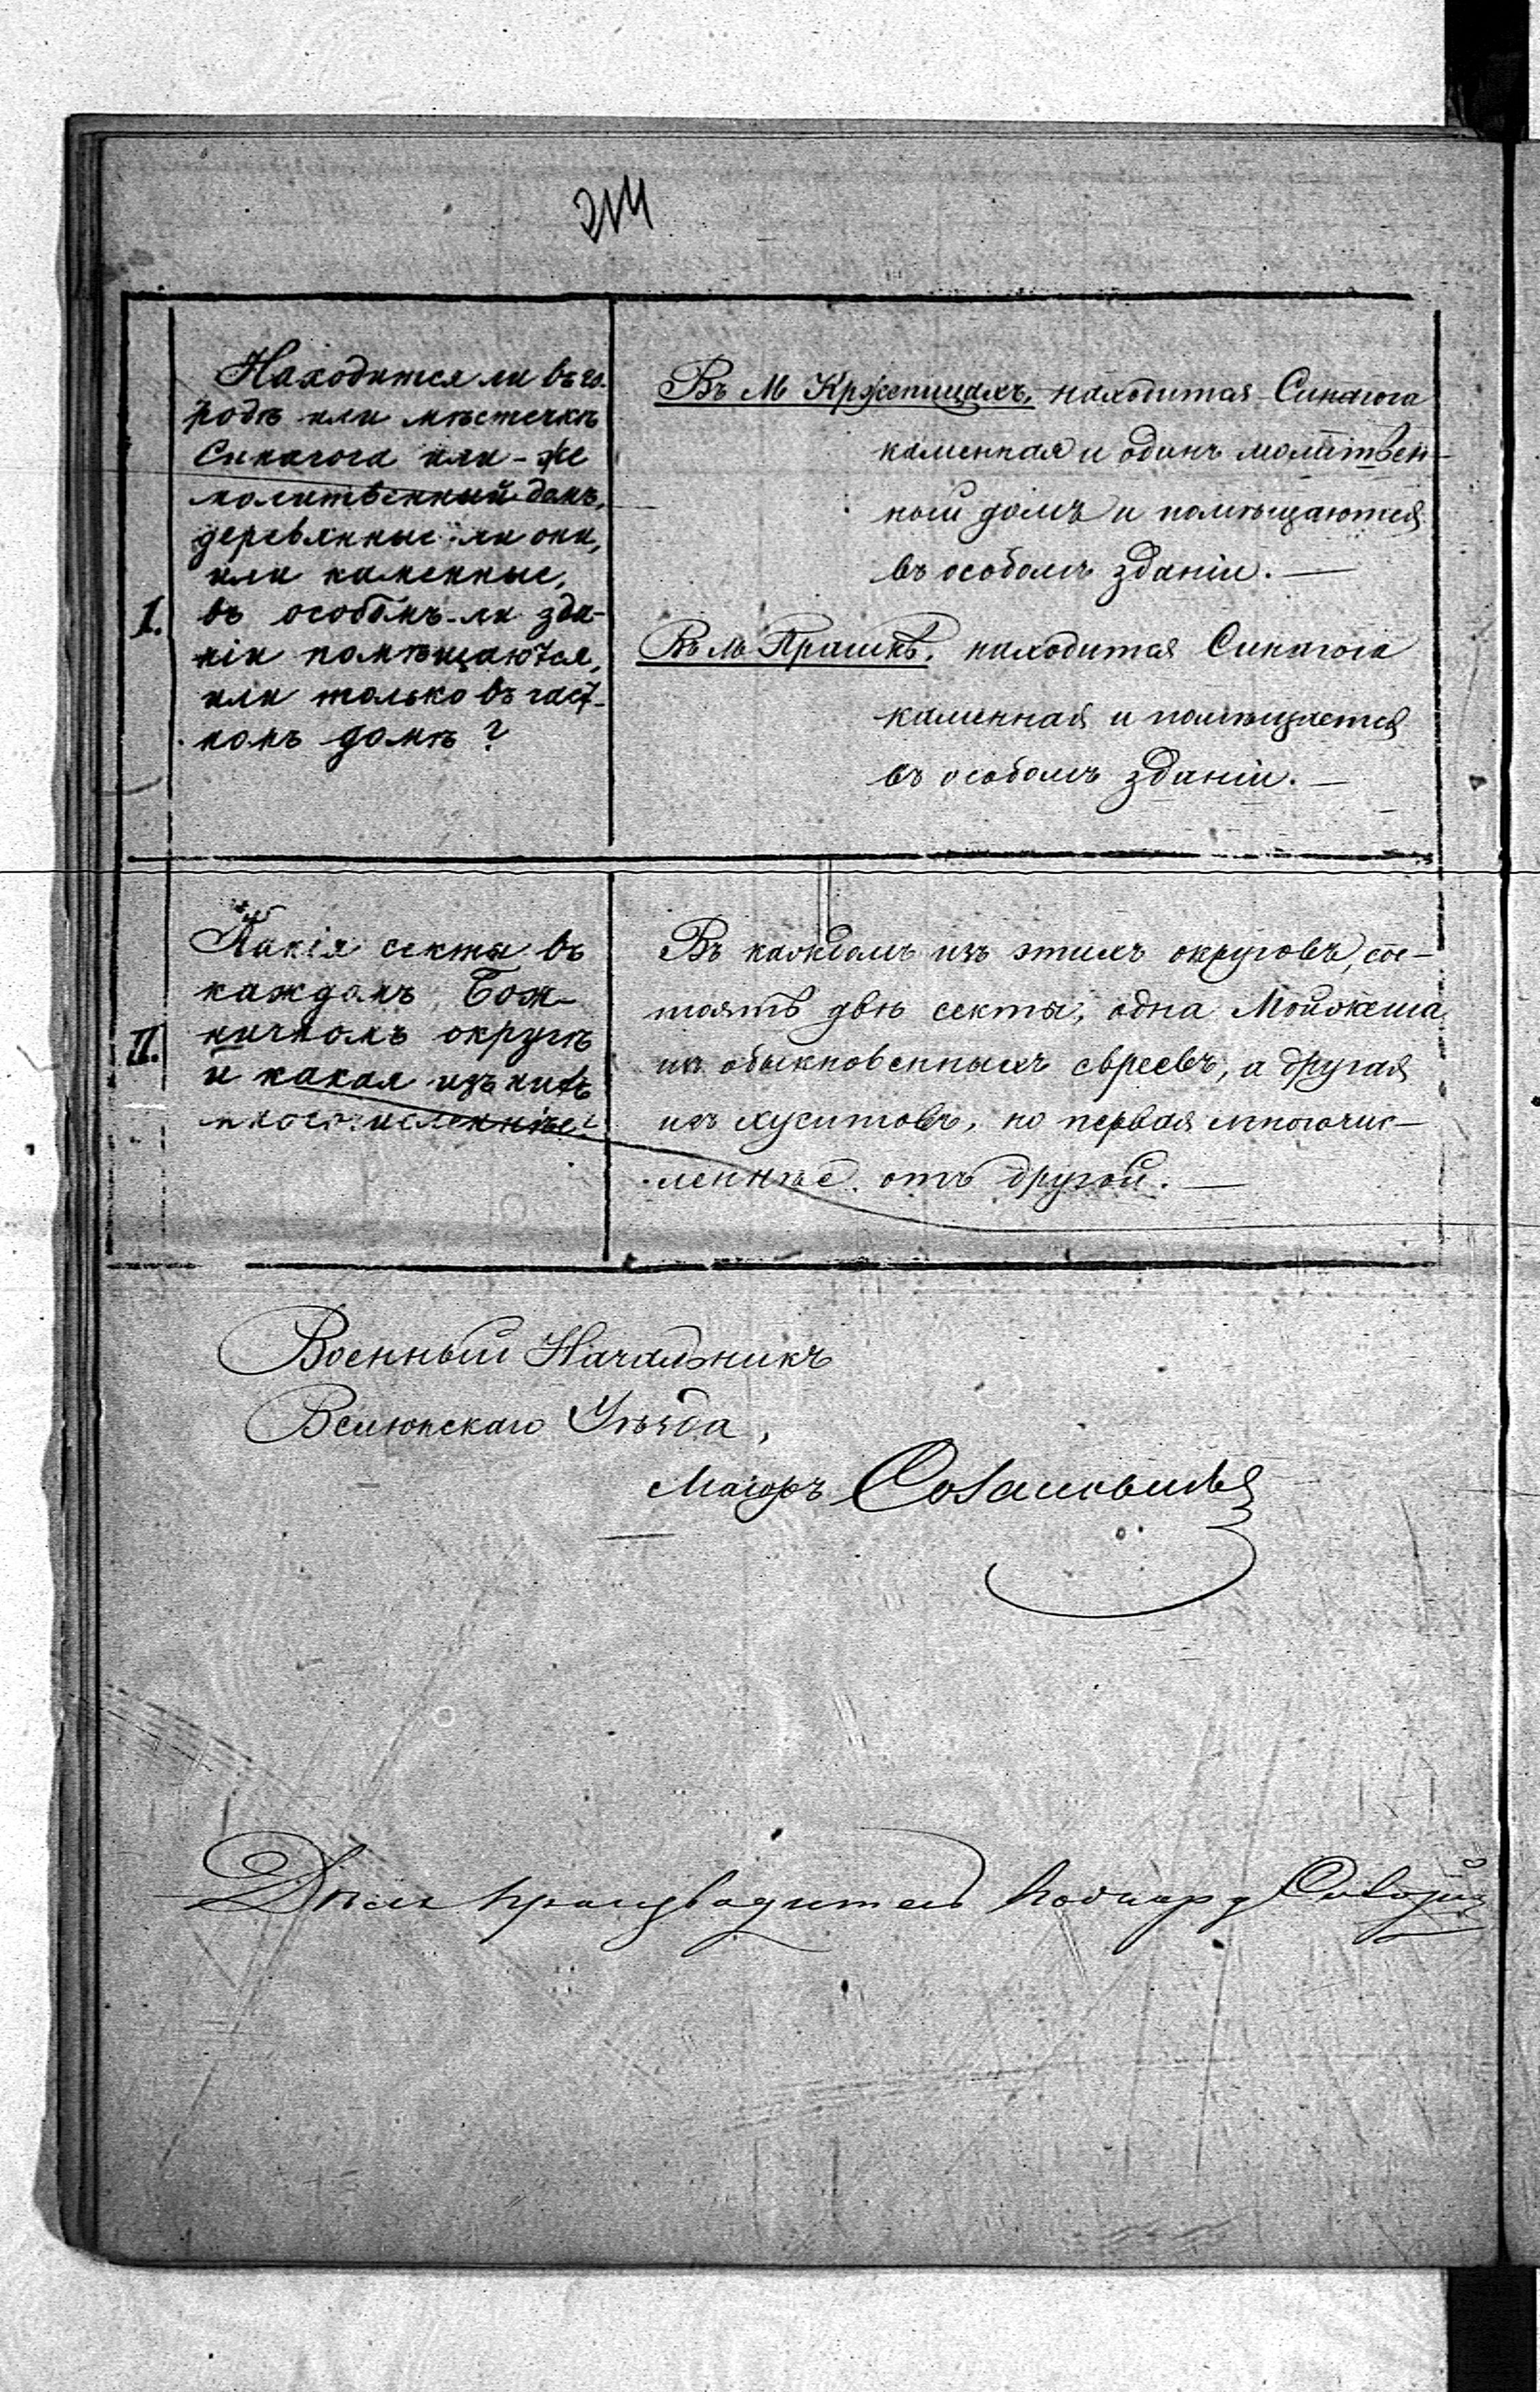 214
I.
Находится ли въ го-
родѣ или мѣстечкѣ
Синагога или-же
молитвенный домъ,
деревянные-ли они,
или каменные,
въ особомъ-ли зда-
нiи помѣщаются,
или только въ част-
номъ домѣ?
Въ М Кржепицахъ, находится Синагога
каменная и одинъ молитвен-
ный домъ и помѣщаются
въ особомъ зданiи. —
Въ м Прашкѣ, находится Синагога
каменная и помѣщается
въ особомъ зданiи. —
II.
Какiя секты въ
каждомъ Бож-
ничномъ округѣ
и какая изъ нихъ
многочисленнѣе?
Въ каждомъ изъ этихъ округовъ, сос-
тоятъ двѣ секты, одна Мойжеша
изъ обыкновенныхъ евреевъ, а другая
изъ хуситовъ, но первая многочис-
леннѣе отъ другой. —
Военный Начальникъ
Велюнскаго Уѣзда,
Маiоръ
Дѣлопроизводитель